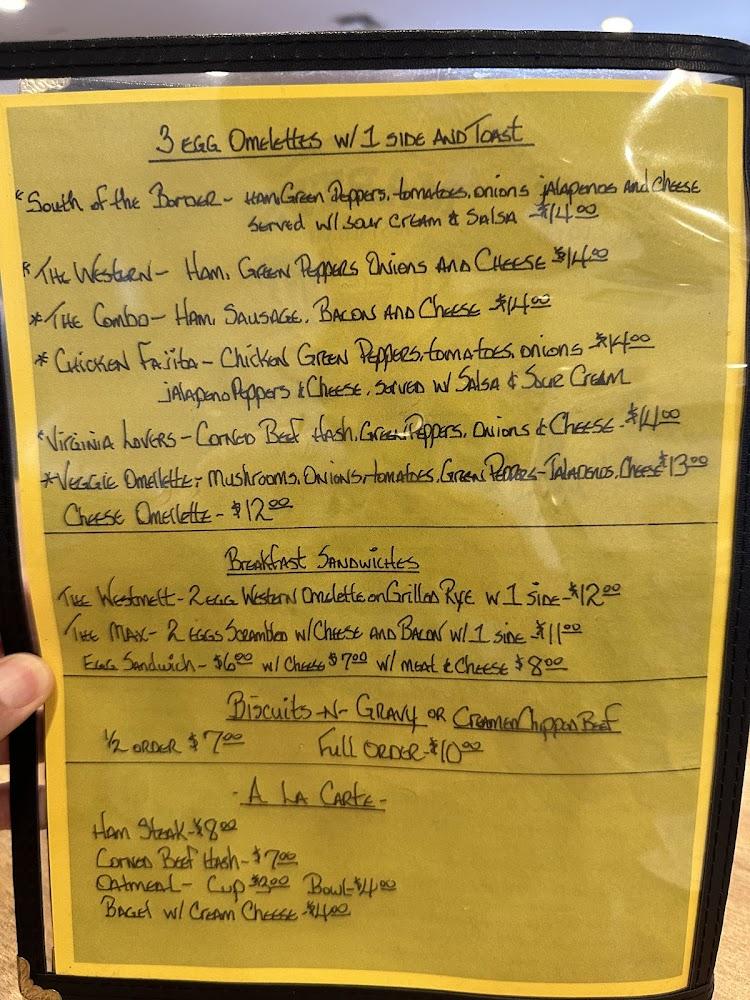 3 Egg Omelettes w/ 1 side and Toast
*South of the Border - Ham, Green Peppers, tomatoes, onions jalapenos and cheese
served w/ sour cream & salsa $14.00
*The Western - Ham, Green Peppers Onions and Cheese $14.00
*The Combo - Ham, Sausage, Bacon and Cheese $14.00
*Chicken Fajita - Chicken Green Peppers, tomatoes, onions $14.00
jalapeno Peppers & Cheese, served w/ Salsa & Sour Cream
*Virginia Lovers - Corned Beef Hash, Green Peppers, Onions & Cheese - $14.00
*Veggie Omellette - Mushrooms, Onions, tomatoes, Green Peppers - Jalapenos, Cheese $13.00
Cheese Omellette - $12.00
Breakfast Sandwiches
The Westmelt - 2 egg Western Omelette on Grilled Rye w 1 side - $12.00
The Max - 2 eggs Scrambled w/ Cheese and Bacon w/ 1 side $11.00
Egg Sandwich - $6.00 w/ Cheese $7.00 w/ meat & Cheese $8.00
Biscuits -N- Gravy or Creamed Chipped Beef
1/2 order $7.00 Full Order - $10.00
- A La Carte -
Ham Steak - $8.00
Corned Beef Hash - $7.00
Oatmeal - Cup $3.00 Bowl - $4.00
Bagel w/ Cream Cheese - $4.00